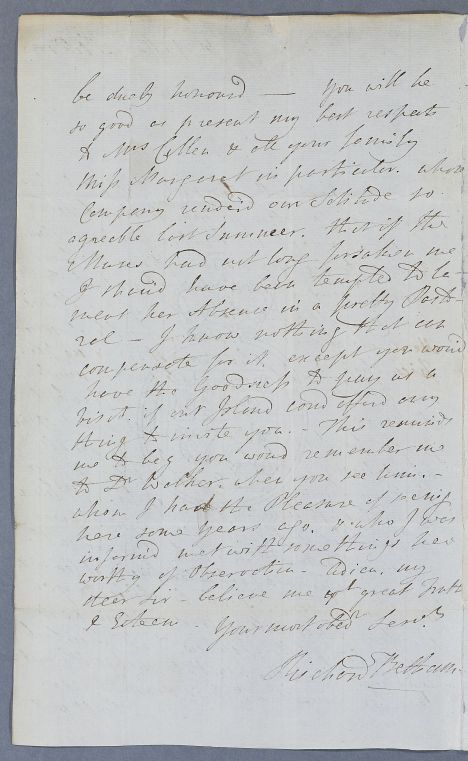 be duely honourd — You will be
so good as present my best respects
to Mrs Cullen & all your family
Miss Margaret in particular. whose
Company renderd our Solitude so
agreeble last Summer, that if the
Muses had not long forsaken me
I shoud have been tempted to la
ment her Absence in a pretty Pasto-
ral – I know nothing that can
compensate for it, except you would
have the Goodness to pay us a
visit, if our Island coud afford any
thing to invite you. – This reminds
me to beg you woud remember me
to Dr Walker, when you see him. –
whom I had the Pleasure of seeing
here some Years ago. & who I was
informd met with somethings here
worthy of Observation – Adieu, my
deer Sir – believe me wt great Truth
& Esteem – Your most obedt Servt
Richard Betham